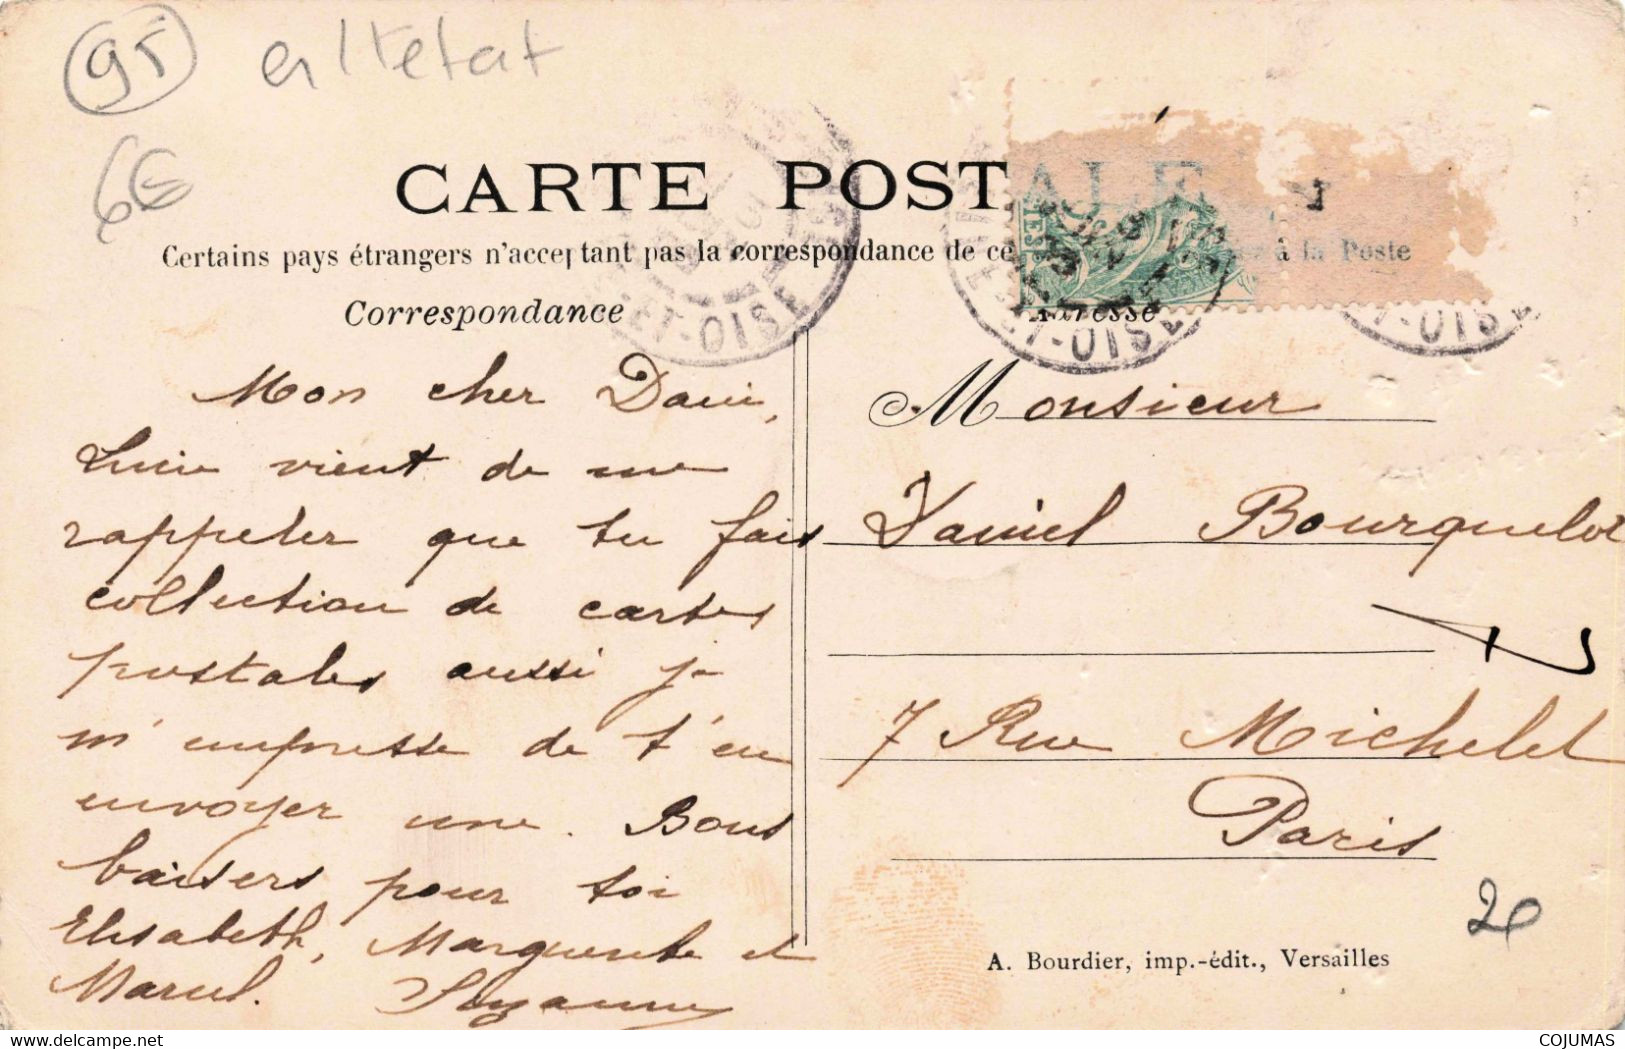 95 en l'état
6€
CARTE POSTALE
Certains pays étrangers n'acceptant pas la correspondance de ce à la Poste
Correspondance
Adresse
ET-OISE
ET-OISE
T-OISE
Mon cher Dani,
Lucie vient de me
rappeler que tu fais
collection de cartes
postales aussi je
m'empresse de t'en
envoyer une. Bons
baisers pour toi
Elisabeth, Marguerite et
Marcel. Suzanne
Monsieur
Daniel Bourquelot
7 Rue Michelet
Paris
20
A. Bourdier, imp.-édit., Versailles
COJUMAS